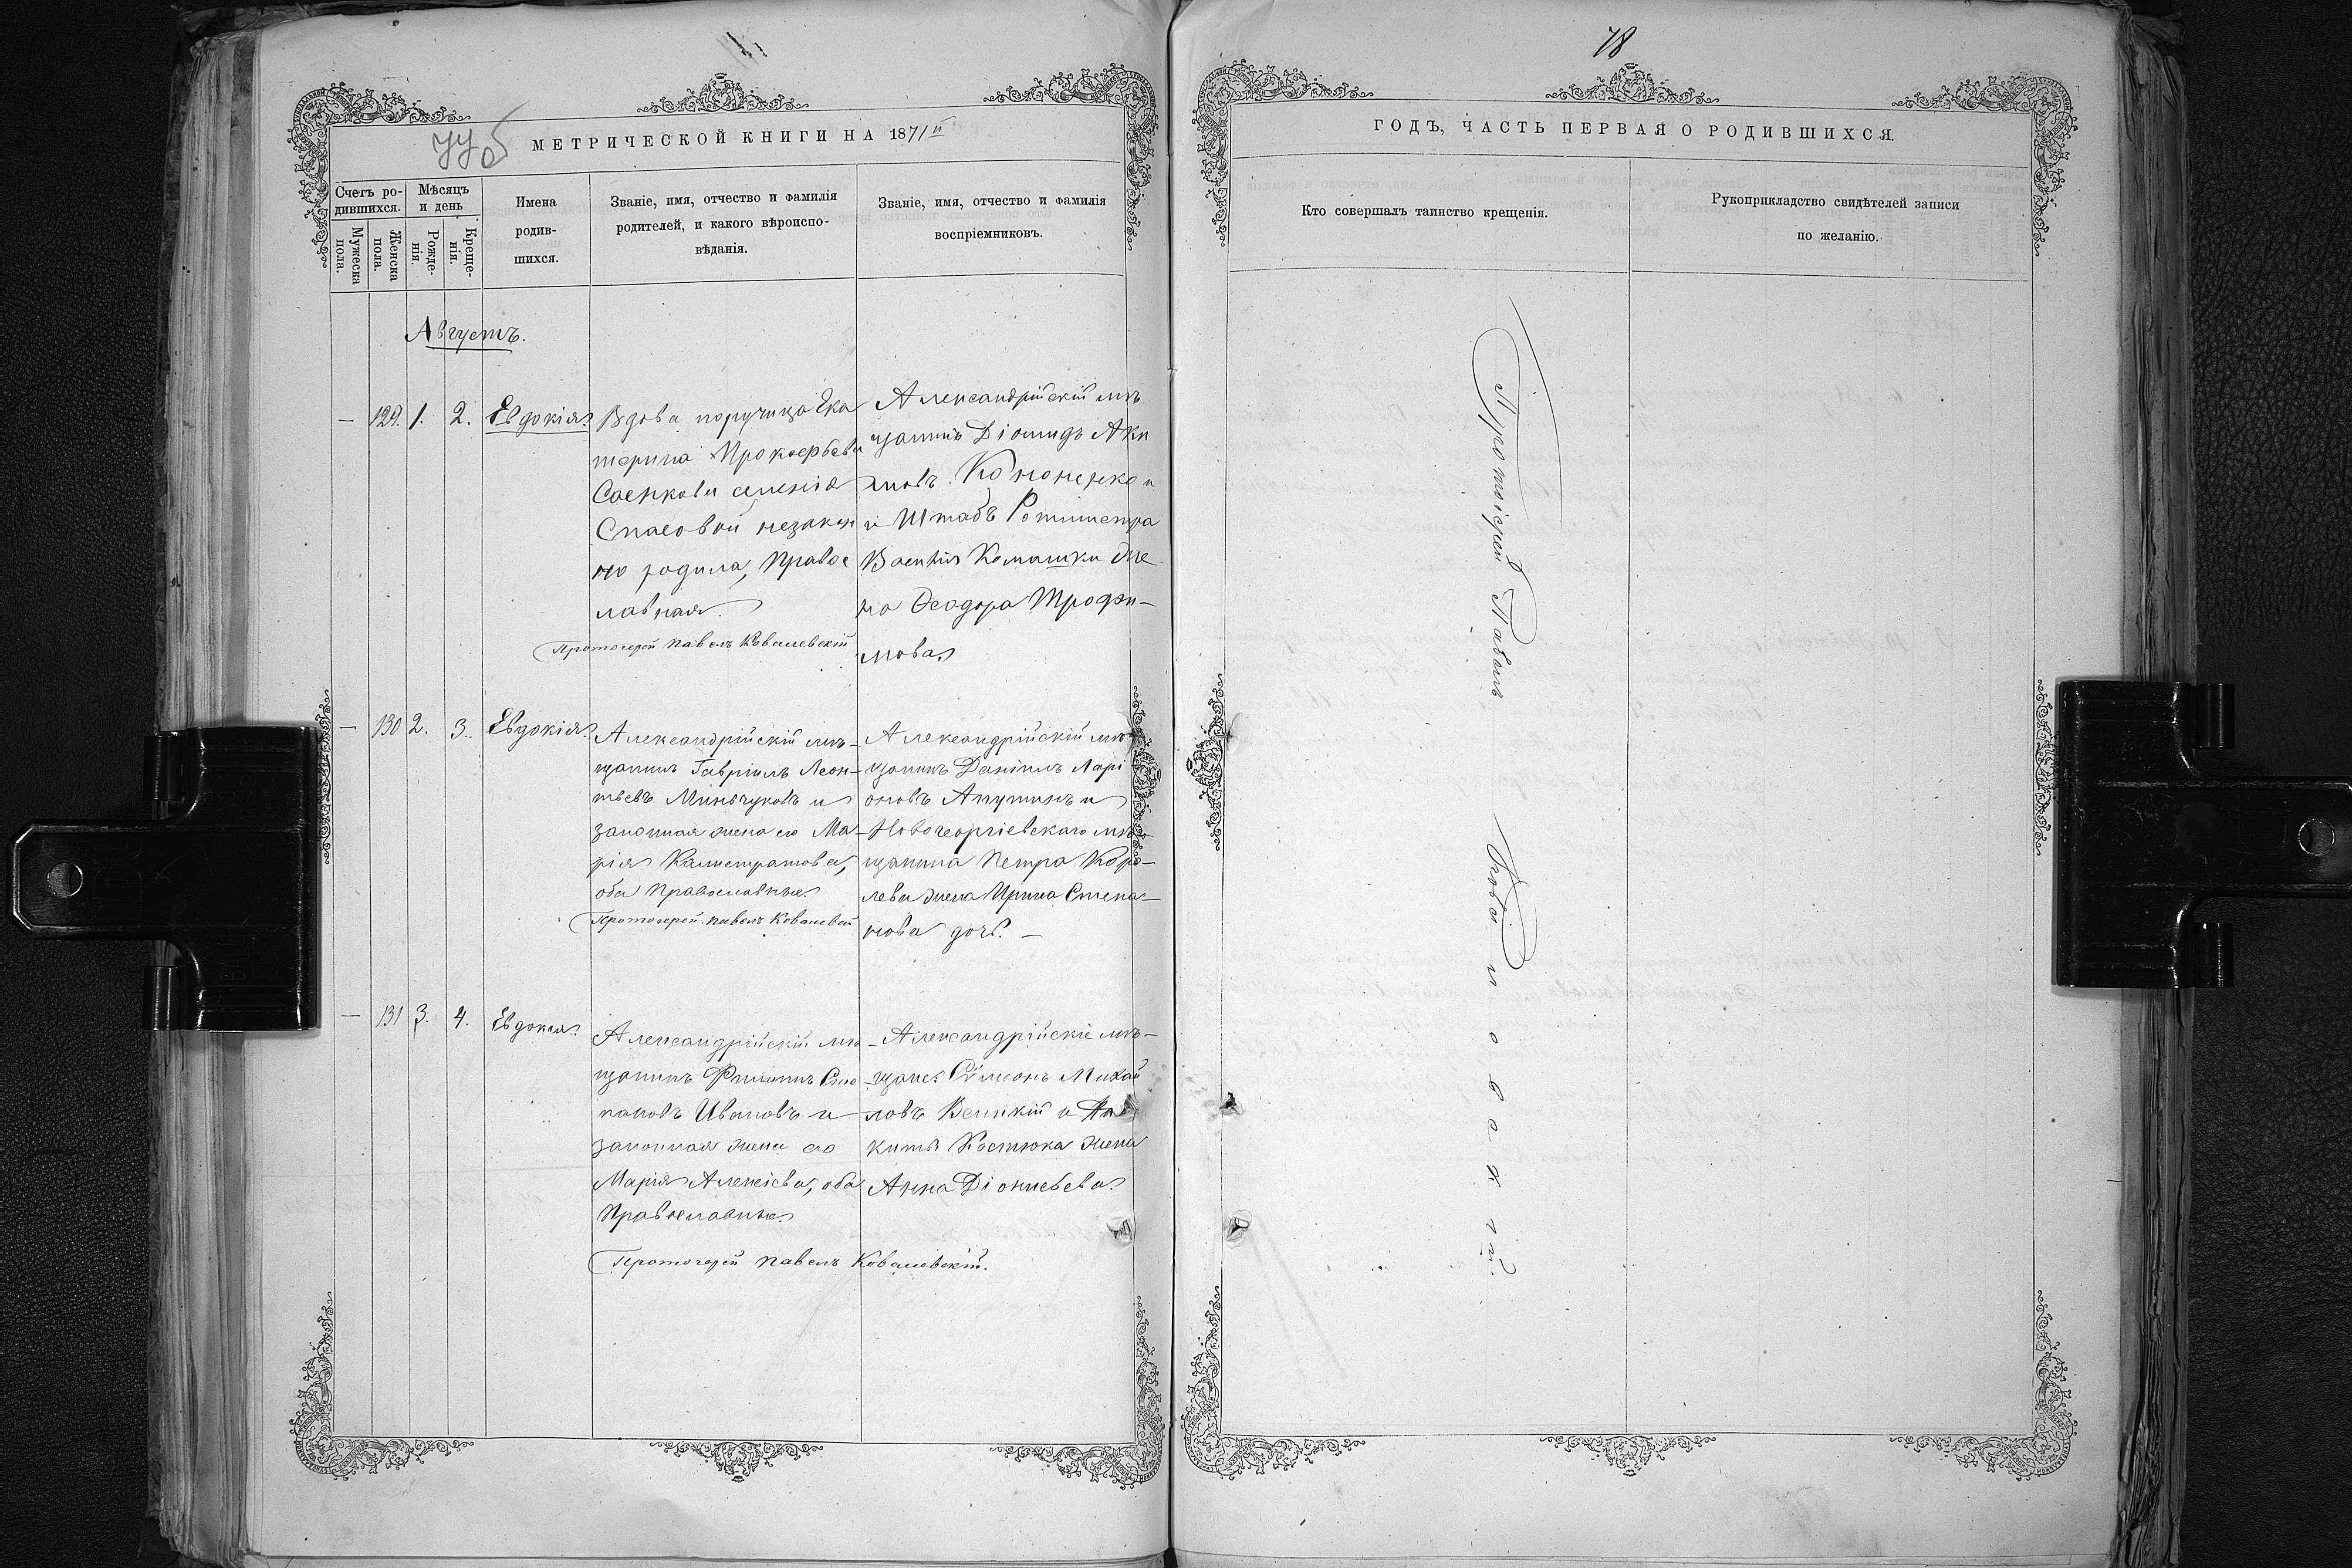 78
МЕТРИЧЕСКОЙ КНИГИ НА 1871й
Счетъ ро-
дившихся.
Мужеска
пола.
Женска
пола.
Мѣсяцъ
и день
Рожде-
нія.
Креще-
нія.
Имена
родив-
шихся.
Званіе, имя, отчество и фамилія
родителей, и какого вѣроиспо-
вѣданія.
Званіе, имя, отчество и фамилія
воспріемниковъ.
Августъ.
— 129. 1. 2. Евдокія
Вдова поручица Ека
терина Прокофьева
Саенкова селенія
Спасовой незакон
но родила, Правос
лавная
Протоіерей Павелъ Ковалевскій
Александрійскій мѣ
щанинъ Діомидъ Аки
мовъ Кононенко и
и Штабъ Ротмистра
Василія Комашки же
на Ѳеодора Трофи-
мова
— 130 2. 3. Евдокія
Александрійскій мѣ-
щанинъ Гавріилъ Леон-
тьевъ и
законная жена его Ма-
рія Калистратова,
оба Православные
Протоіерей Павелъ Ковалевскій
Александрійскій мѣ-
щанинъ Даніилъ Ларі
оновъ и
Новогеоргіевскаго мѣ-
щанина Петра Коро-
лева жена Ирина Степа-
нова дочь. —
— 131 3. 4. Евдокія
Александрійскій мѣ-
щанинъ Филиппъ Сте
пановъ Ивановъ и
законная жена его
Марія Алексіева, оба
Православные
Протоіерей Павелъ Ковалевскій.
Александрійскіе мѣ-
щане: Сѵмеонъ Михай
ловъ Великій и
Костюка жена
Анна Діонисьева
ГОДЪ, ЧАСТЬ ПЕРВАЯ О РОДИВШИХСЯ.
Кто совершалъ таинство крещенія.
Рукоприкладство свидѣтелей записи
по желанію.
Протоіерей Павелъ Ковалевскій.